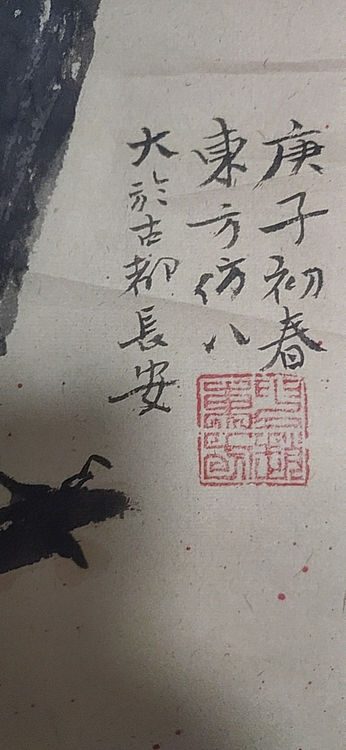 庚子初春
東方仿八
大於古都長安